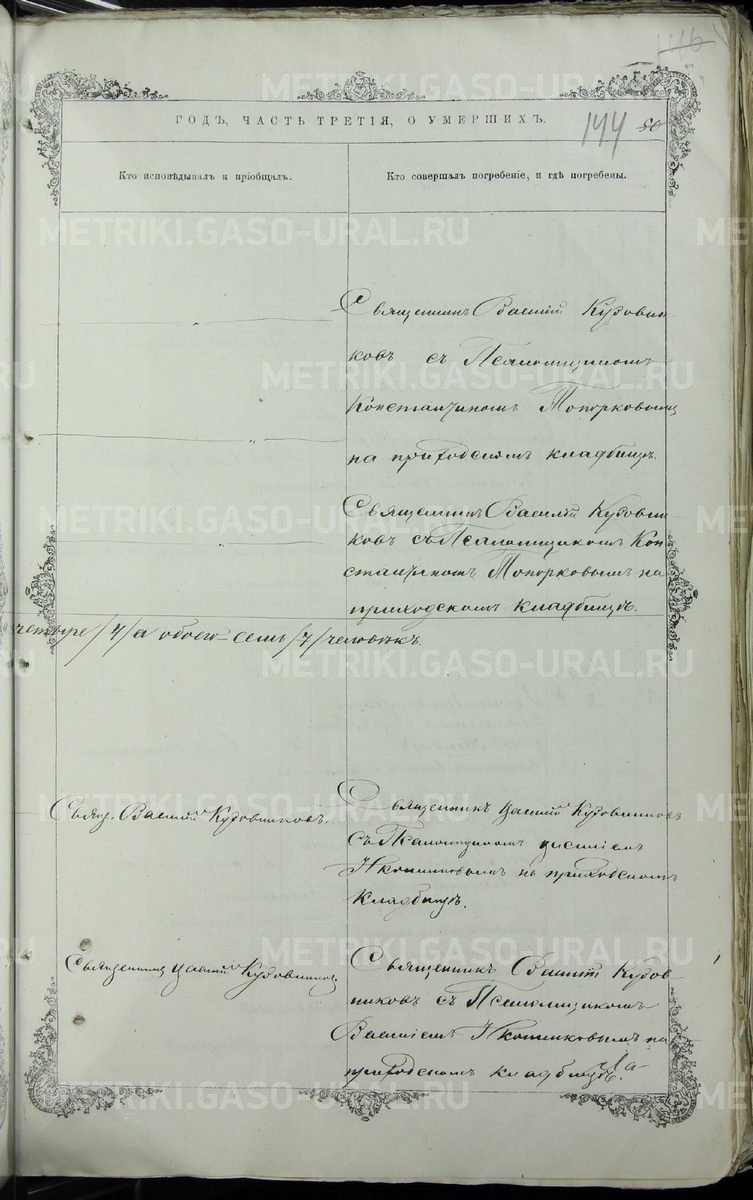 116
ГОДЪ, ЧАСТЬ ТРЕТІЯ, О УМЕРШИХЪ.
144 80
Кто исповѣдывалъ и пріобщалъ.
Кто совершалъ погребеніе, и гдѣ погребены.
Священникъ Василій Кудовни-
ковъ съ Псаломщикомъ
Константиномъ Топорковымъ
на приходскомъ кладбищѣ.
Священникъ Василій Кудовни-
ковъ съ Псаломщикомъ Кон-
стантиномъ Топорковымъ на
приходскомъ кладбищѣ.
четыре /4/ а обоего семь /7/ человѣкъ.
Свящ. Василій Кудовниковъ.
Священникъ Василій Кудовниковъ
съ Псаломщикомъ Василіемъ
Иконниковымъ на приходскомъ
кладбищѣ.
Священникъ Василій Кудовниковъ
Священникъ Василій Кудов-
никовъ съ Псаломщикомъ
Василіемъ Иконниковымъ на
приходскомъ кладбищѣ.
METRIKI.GASO-URAL.RU